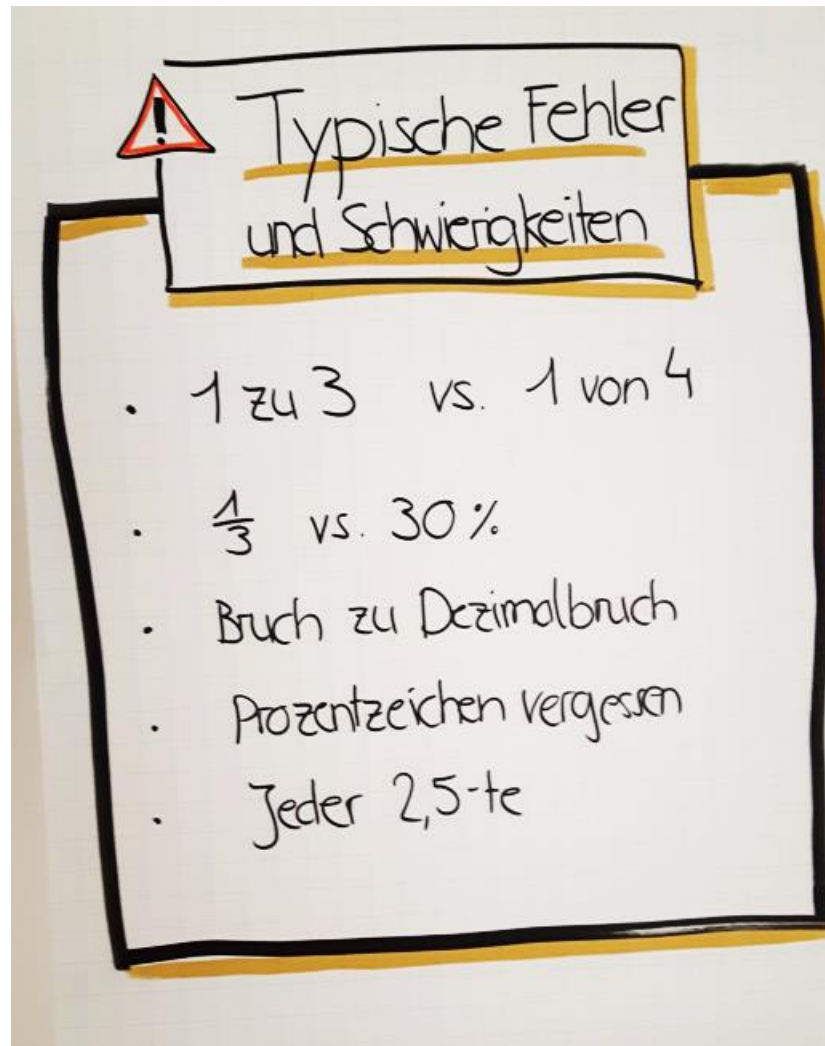 Typische Fehler
und Schwierigkeiten
• 1 zu 3 vs. 1 von 4
• 1/3 vs. 30%
• Bruch zu Dezimalbruch
• Prozentzeichen vergessen
• Jeder 2,5-te